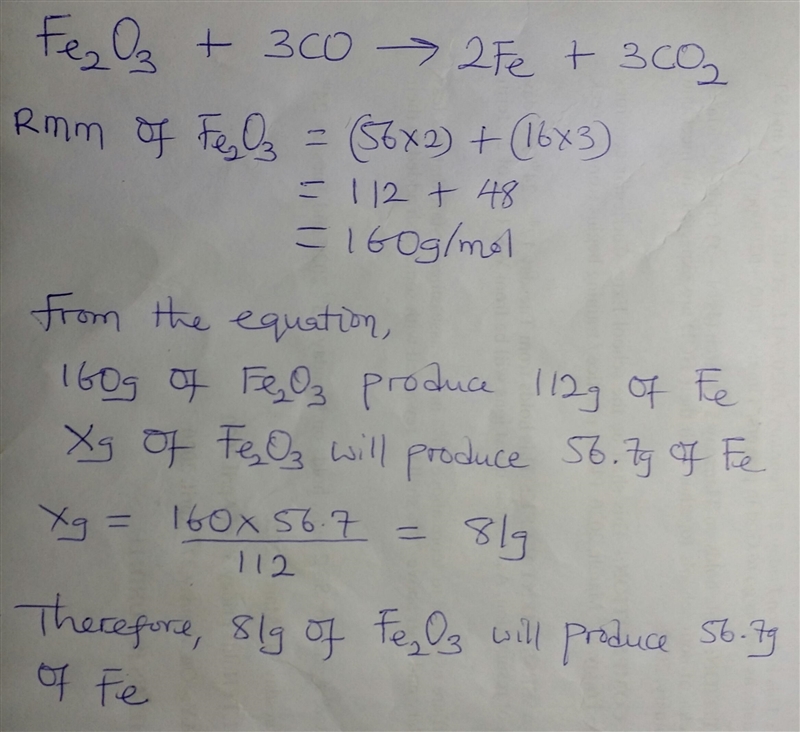 Fe₂O₃ + 3CO → 2Fe + 3CO₂
Rmm of Fe₂O₃ = (56×2) + (16×3)
= 112 + 48
= 160g/mol
From the equation,
160g of Fe₂O₃ produce 112g of Fe
Xg of Fe₂O₃ will produce 56.7g of Fe
Xg = 160 × 56.7 / 112 = 81g
Therefore, 81g of Fe₂O₃ will produce 56.7g
of Fe